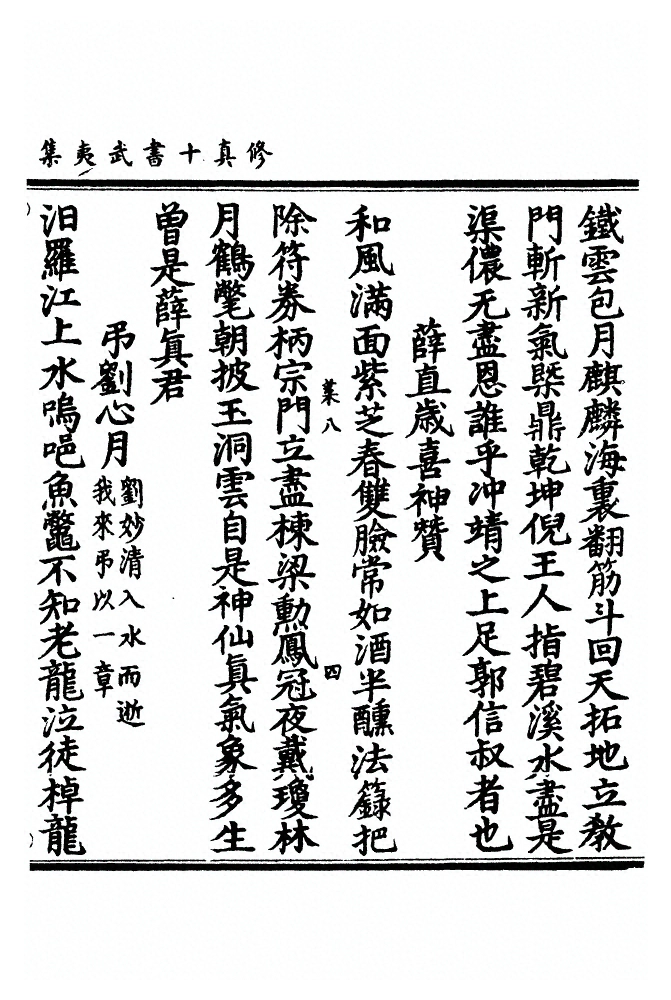 修真十書武夷集
鐵雲包月麒麟海裏翻筋斗回天拓地立教
門斬新氣槩鼎乾坤倪王人指碧溪水盡是
渠儂无盡恩誰乎沖靖之上足郭信叔者也
薛直歲喜神贊
和風滿面紫芝春雙臉常如酒半醺法籙把
菜八
四
除符券柄宗門立盡棟梁勳鳳冠夜戴瓊林
月鶴氅朝披玉洞雲自是神仙真氣象多生
曾是薛真君
弔劉心月
劉妙清入水而逝
我來弔以一章
汨羅江上水嗚唈魚鼈不知老龍泣徒棹龍